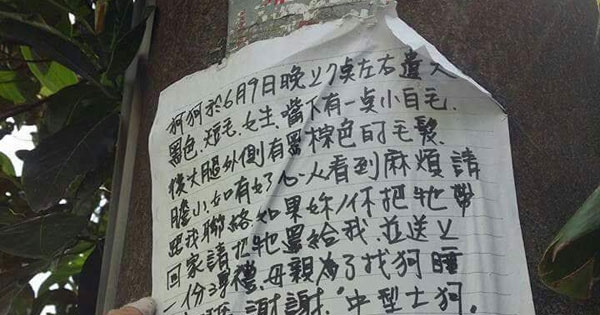 狗狗於6月9日晚上7点左右遺失
黑色、短毛、女生、嘴下有一点小白毛、
後大腿外側有黑棕色的毛髮、
膽小、如有好心人看到麻煩請
跟我聯絡、如果妳/你把牠帶
回家請把牠還給我、並送上
一份厚禮、母親為了找狗睡
謝謝."中型土狗.